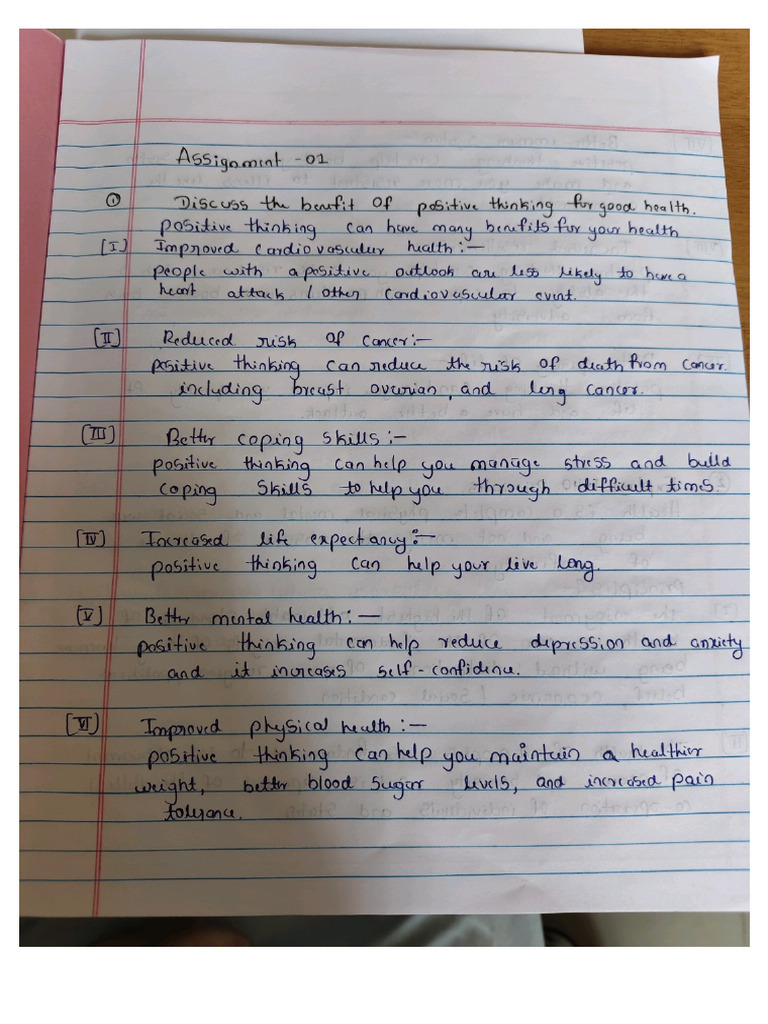 Assignment -01
① Discuss the benefit of positive thinking for good health.
positive thinking can have many benefits for your health
[I] Improved cardiovascular health:-
people with a positive outlook are less likely to have a
heart attack / other cardiovascular event.
[II] Reduced risk of cancer:-
positive thinking can reduce the risk of death from cancer.
including breast ovarian, and lung cancer.
[III] Better coping skills:-
positive thinking can help you manage stress and build
coping skills to help you through difficult times.
[IV] Increased life expectancy:-
positive thinking can help your live long.
[V] Better mental health:-
positive thinking can help reduce depression and anxiety
and it increases self-confidence.
[VI] Improved physical health:-
positive thinking can help you maintain a healthier
weight, better blood sugar levels, and increased pain
tolerance.